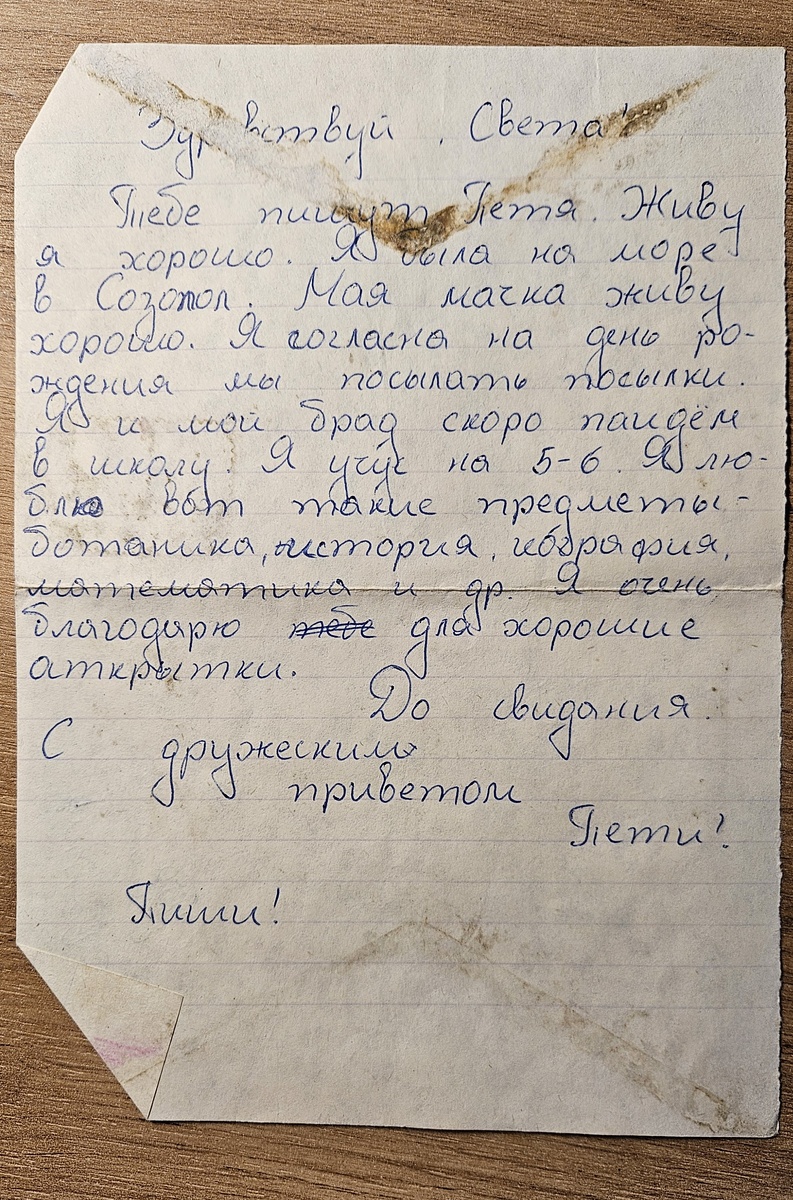 Здравствуй, Света!
Тебе пишут Петя. Живу
я хорошо. Я была на море
в Созопол. Мая мачка живу
хорошо. Я согласна на день ро-
ждения мы посылать посылки.
Я и мой брад скоро паидём
в школу. Я учус на 5-6. Я лю-
блю вот такие предметы-
ботаника, история, география,
математика и др. Я очень
благодарю тебе для хорошие
аткрытки.
До свидания.
С дружеским
приветом
Пети!
Пиши!